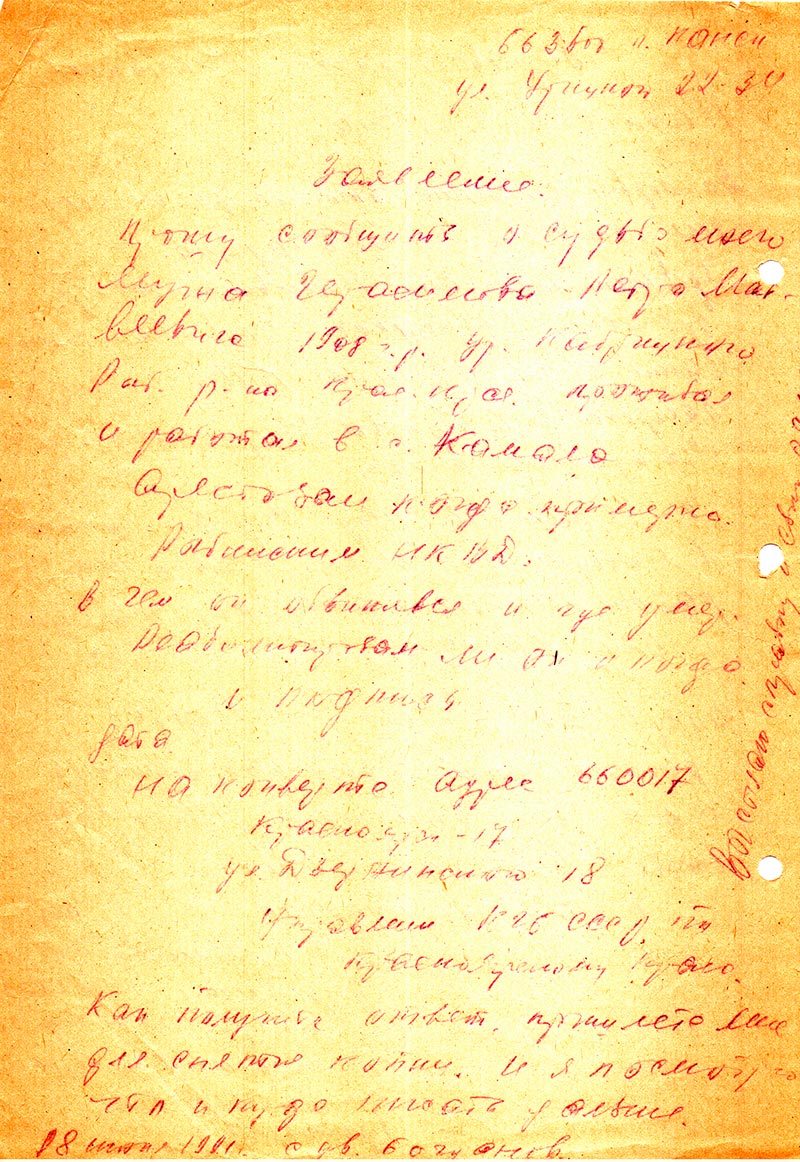 г. Канск
ул. Урицкой 22-34
Заявление.
Прошу сообщить о судьбе моего
мужа Герасимова Петра Мат-
веевича 1908 г.р. ур.
Рыб. р-на Края. проживая
и работая в с. Камала
Арестован когда примерно.
Рыбинским НКВД.
В чем он обвинялся и где умер.
Реабилитирован ли он и когда
и подпись
дата
На конверте адрес 660017
Красноярск-17
ул Дзержинского 18
Управление КГБ СССР по
Красноярскому Краю.
Как получите ответ, пришлете мне
для снятия копии. и я посмотрю
что и куда писать дальше.
18 июня 1991г. с ув. Богданов.
Высылаю справку и